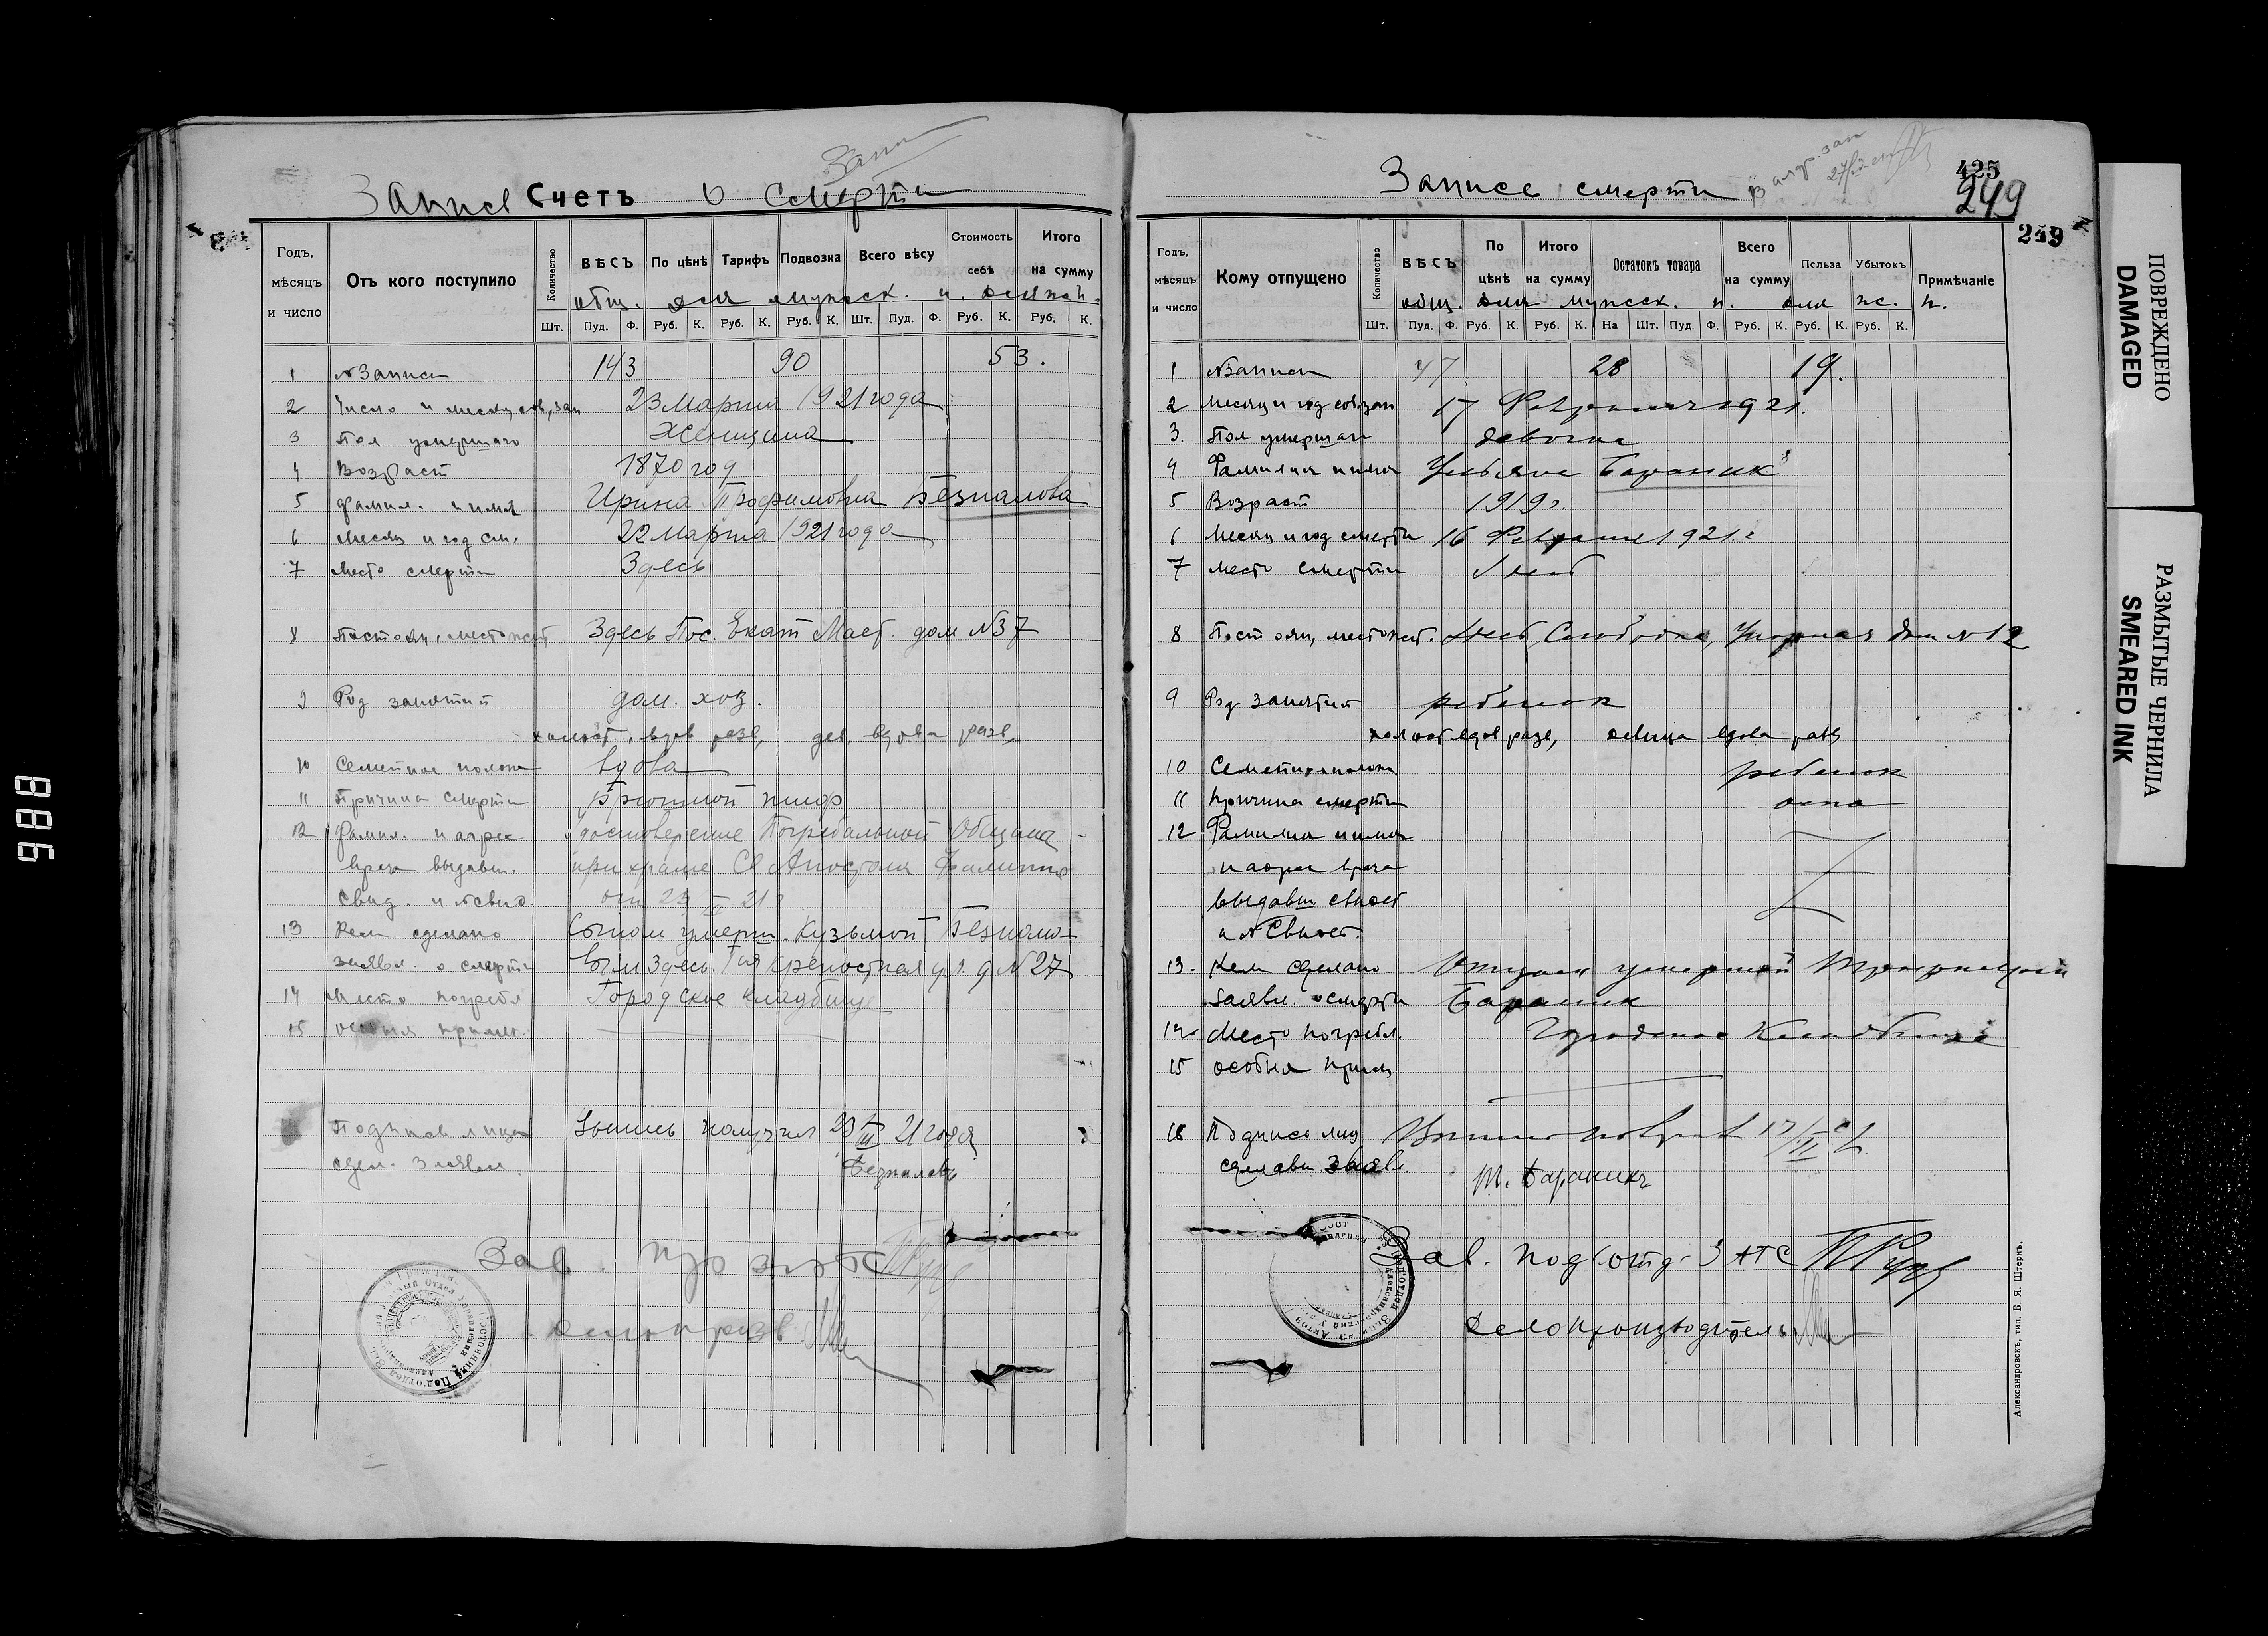 Запись Счетъ о смерти
Годъ, мѣсяцъ и число
Отъ кого поступило
Количество
ВѢСЪ По цѣнѣ Тарифъ Подвозка Всего вѣсу Стоимость себѣ Итого на сумму
общ. для мужск. и для жен.
Шт. Пуд. Ф. Руб. К. Руб. К. Руб. К. Шт. Пуд. Ф. Руб. К. Руб. К.
1 № Записи 143 90 53.
2 Число и месяц сов, зап 23 Марта 1921 года
3 Пол умершаго Женщина
4 Возраст 1870 год
5 Фамил. и имя Ирина Трофимовна Безпалова
6 Месяц и год см. 22 марта 1921 года
7 Место смерти Здесь
8 Постоян, местожит Здесь Пос. Екат Маст. дом № 37
9 Род занятий дом. хоз.
холост, вдов разв, дев. вдова разв,
10 Семейное полож вдова
11 Причина смерти Брюшной тиф
12 Фамил. и адрес удостоверение Погребальной Общины
врача выдавш. при храме Св Апостола Филиппа
свид. и № свид. от 23 III 21 г
13 Кем сделано Сыном умерш. Кузьмой Безпало-
заявл. о смерти вым Здесь. Крепостная ул. д № 27
14 Место погребл Городское кладбище
15 особыя примеч.
Подпись лица Выпись получил 23 III 21 года
сдел. заявл. Безпаловъ
Зав.
делопроизв.
Запись смерти
425
249
249
Годъ, мѣсяцъ и число
Кому отпущено
Количество
ВѢСЪ По цѣнѣ Итого на сумму Остатокъ товара Всего на сумму Польза Убытокъ Примѣчаніе
общ. для мужск. и. для же. н.
Шт. Пуд. Ф. Руб. К. Руб. К. На Шт. Пуд. Ф. Руб. К. Руб. К. Руб. К.
1 № записи 47 28 19.
2 Месяц и год сов. зап 17 Февраля 1921.
3. Пол умершаго девочка
4 Фамилия и имя Ульяна Бараник
5 Возраст 1919 г.
6 Месяц и год смерти 16 Февраля 1921 г
7 место смерти Здесь
8 Постоян, местожит. Здесь, Слободка, Узорная дом № 12
9 Род занятий ребенок
холост вдов разв, девица вдова разв
10 Семейное полож. ребенок
11 причина смерти оспа
12 Фамилия и имя
и адрес врача
выдавш свидет
и № Свидет.
13. Кем сделано Отцом умершей
заявл. о смерти Бараник
14 Место погребл. Городское Кладбище
15 особыя примеч
16 Подпись лиц 17/II 21
сделавш. заявл. Т. Бараникъ
Зав. подотд. ЗАГС
Делопроизводитель
Александровскъ, тип. Б. Я. Штернъ.
ПОВРЕЖДЕНО
DAMAGED
РАЗМЫТЫЕ ЧЕРНИЛА
SMEARED INK
988